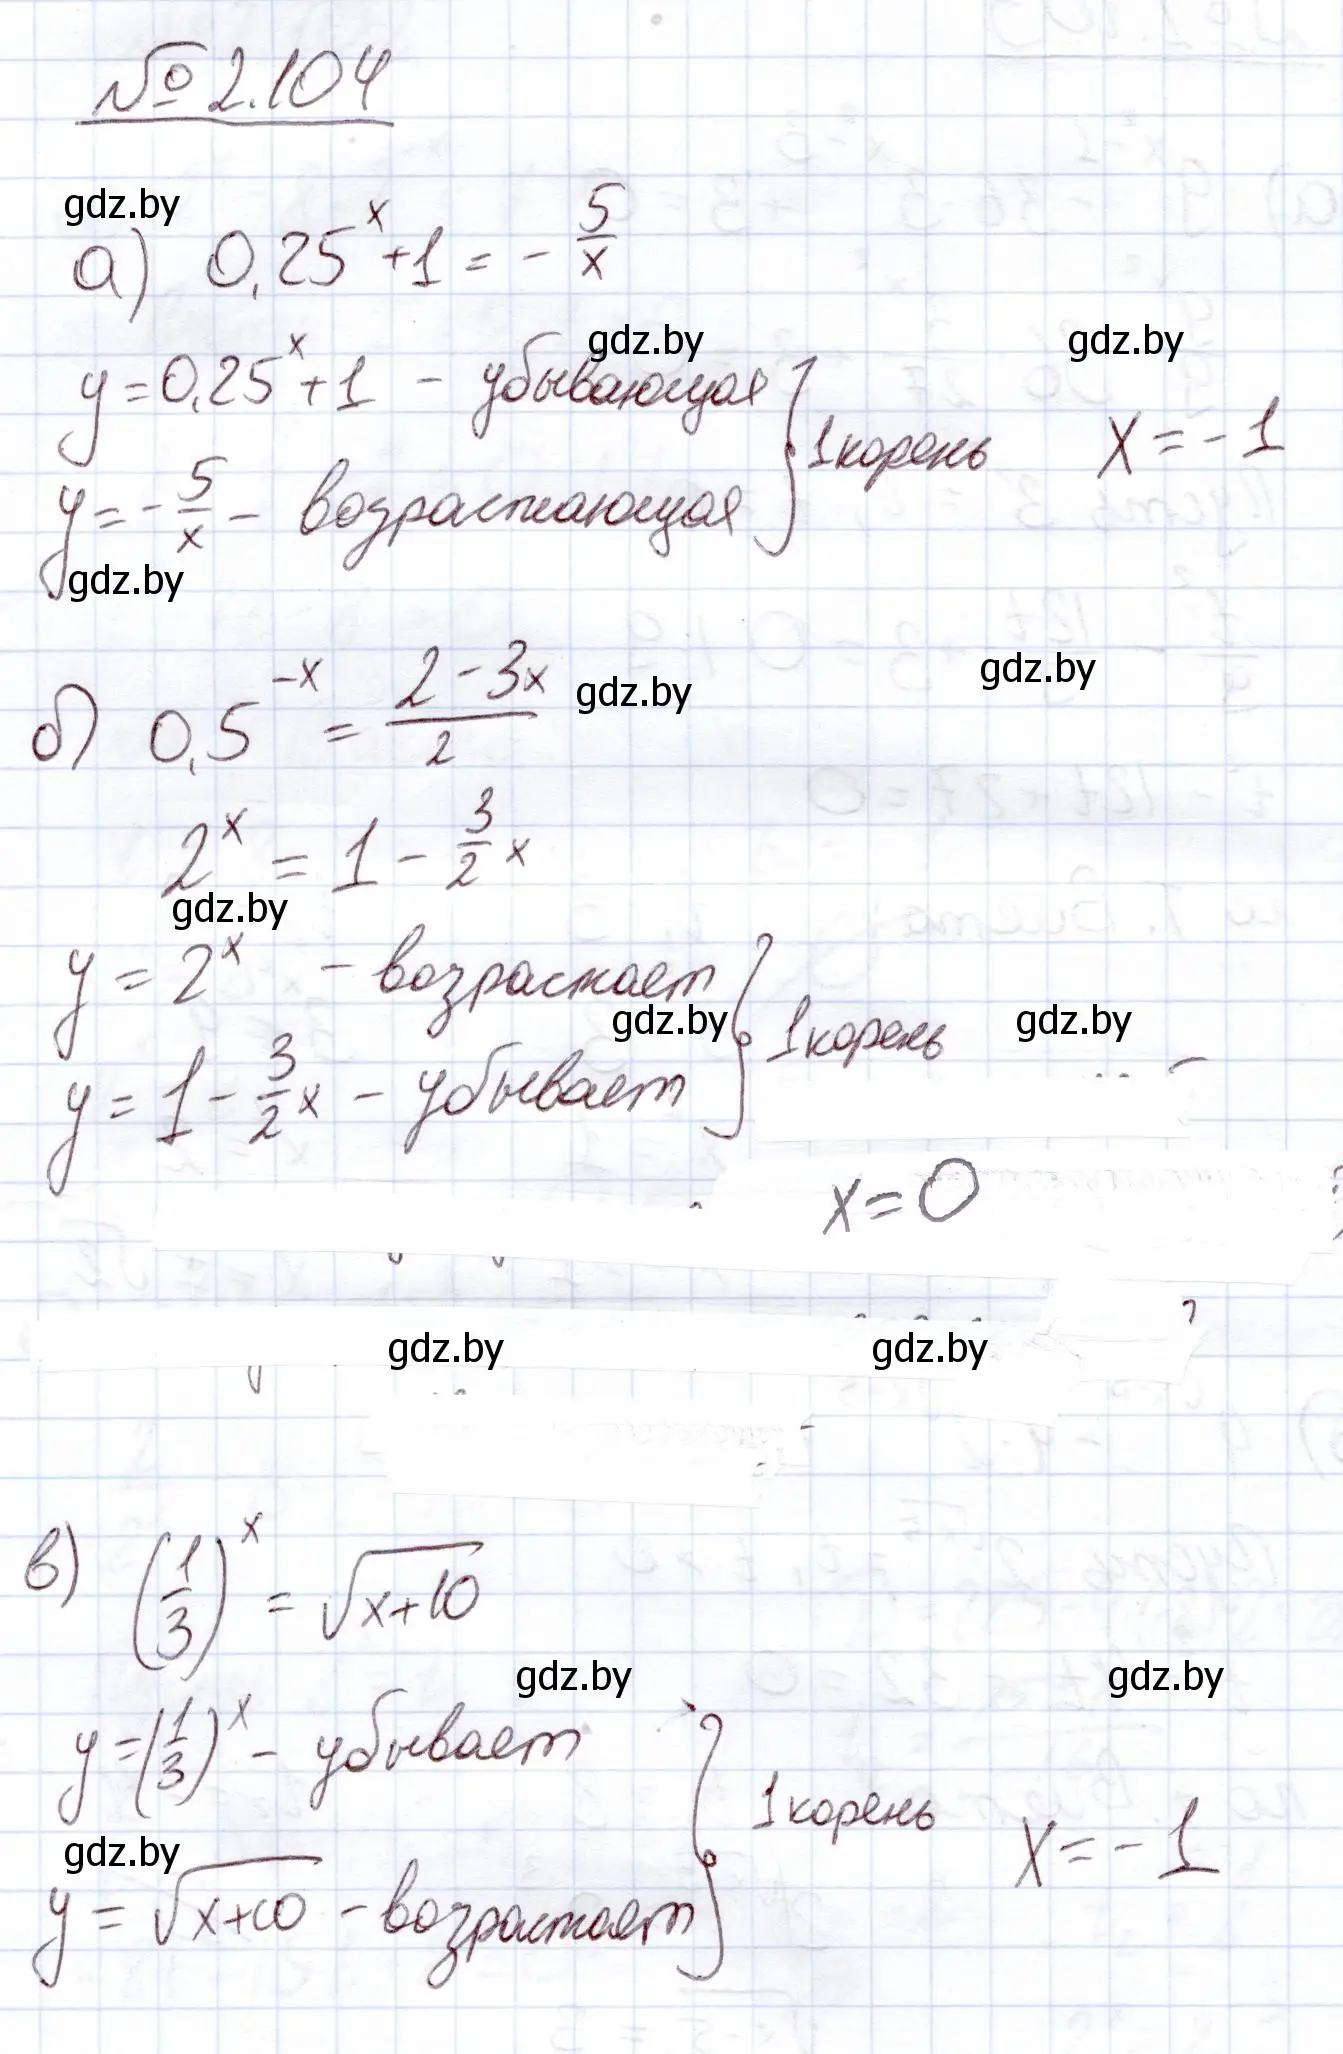 № 2.104
gdz.by
а) 0,25^x + 1 = - 5/x
gdz.by gdz.by
y = 0,25^x + 1 - убывающая
1 корень x = -1
y = - 5/x - возрастающая
gdz.by
б) 0,5^-x = (2 - 3x)/2 gdz.by gdz.by
2^x = 1 - 3/2 x
gdz.by
y = 2^x - возрастает
gdz.by 1 корень gdz.by
y = 1 - 3/2 x - убывает
x = 0
gdz.by gdz.by
в) (1/3)^x = √(x+10)
gdz.by gdz.by
y = (1/3)^x - убывает
1 корень x = -1
gdz.by
y = √(x+10) - возрастает